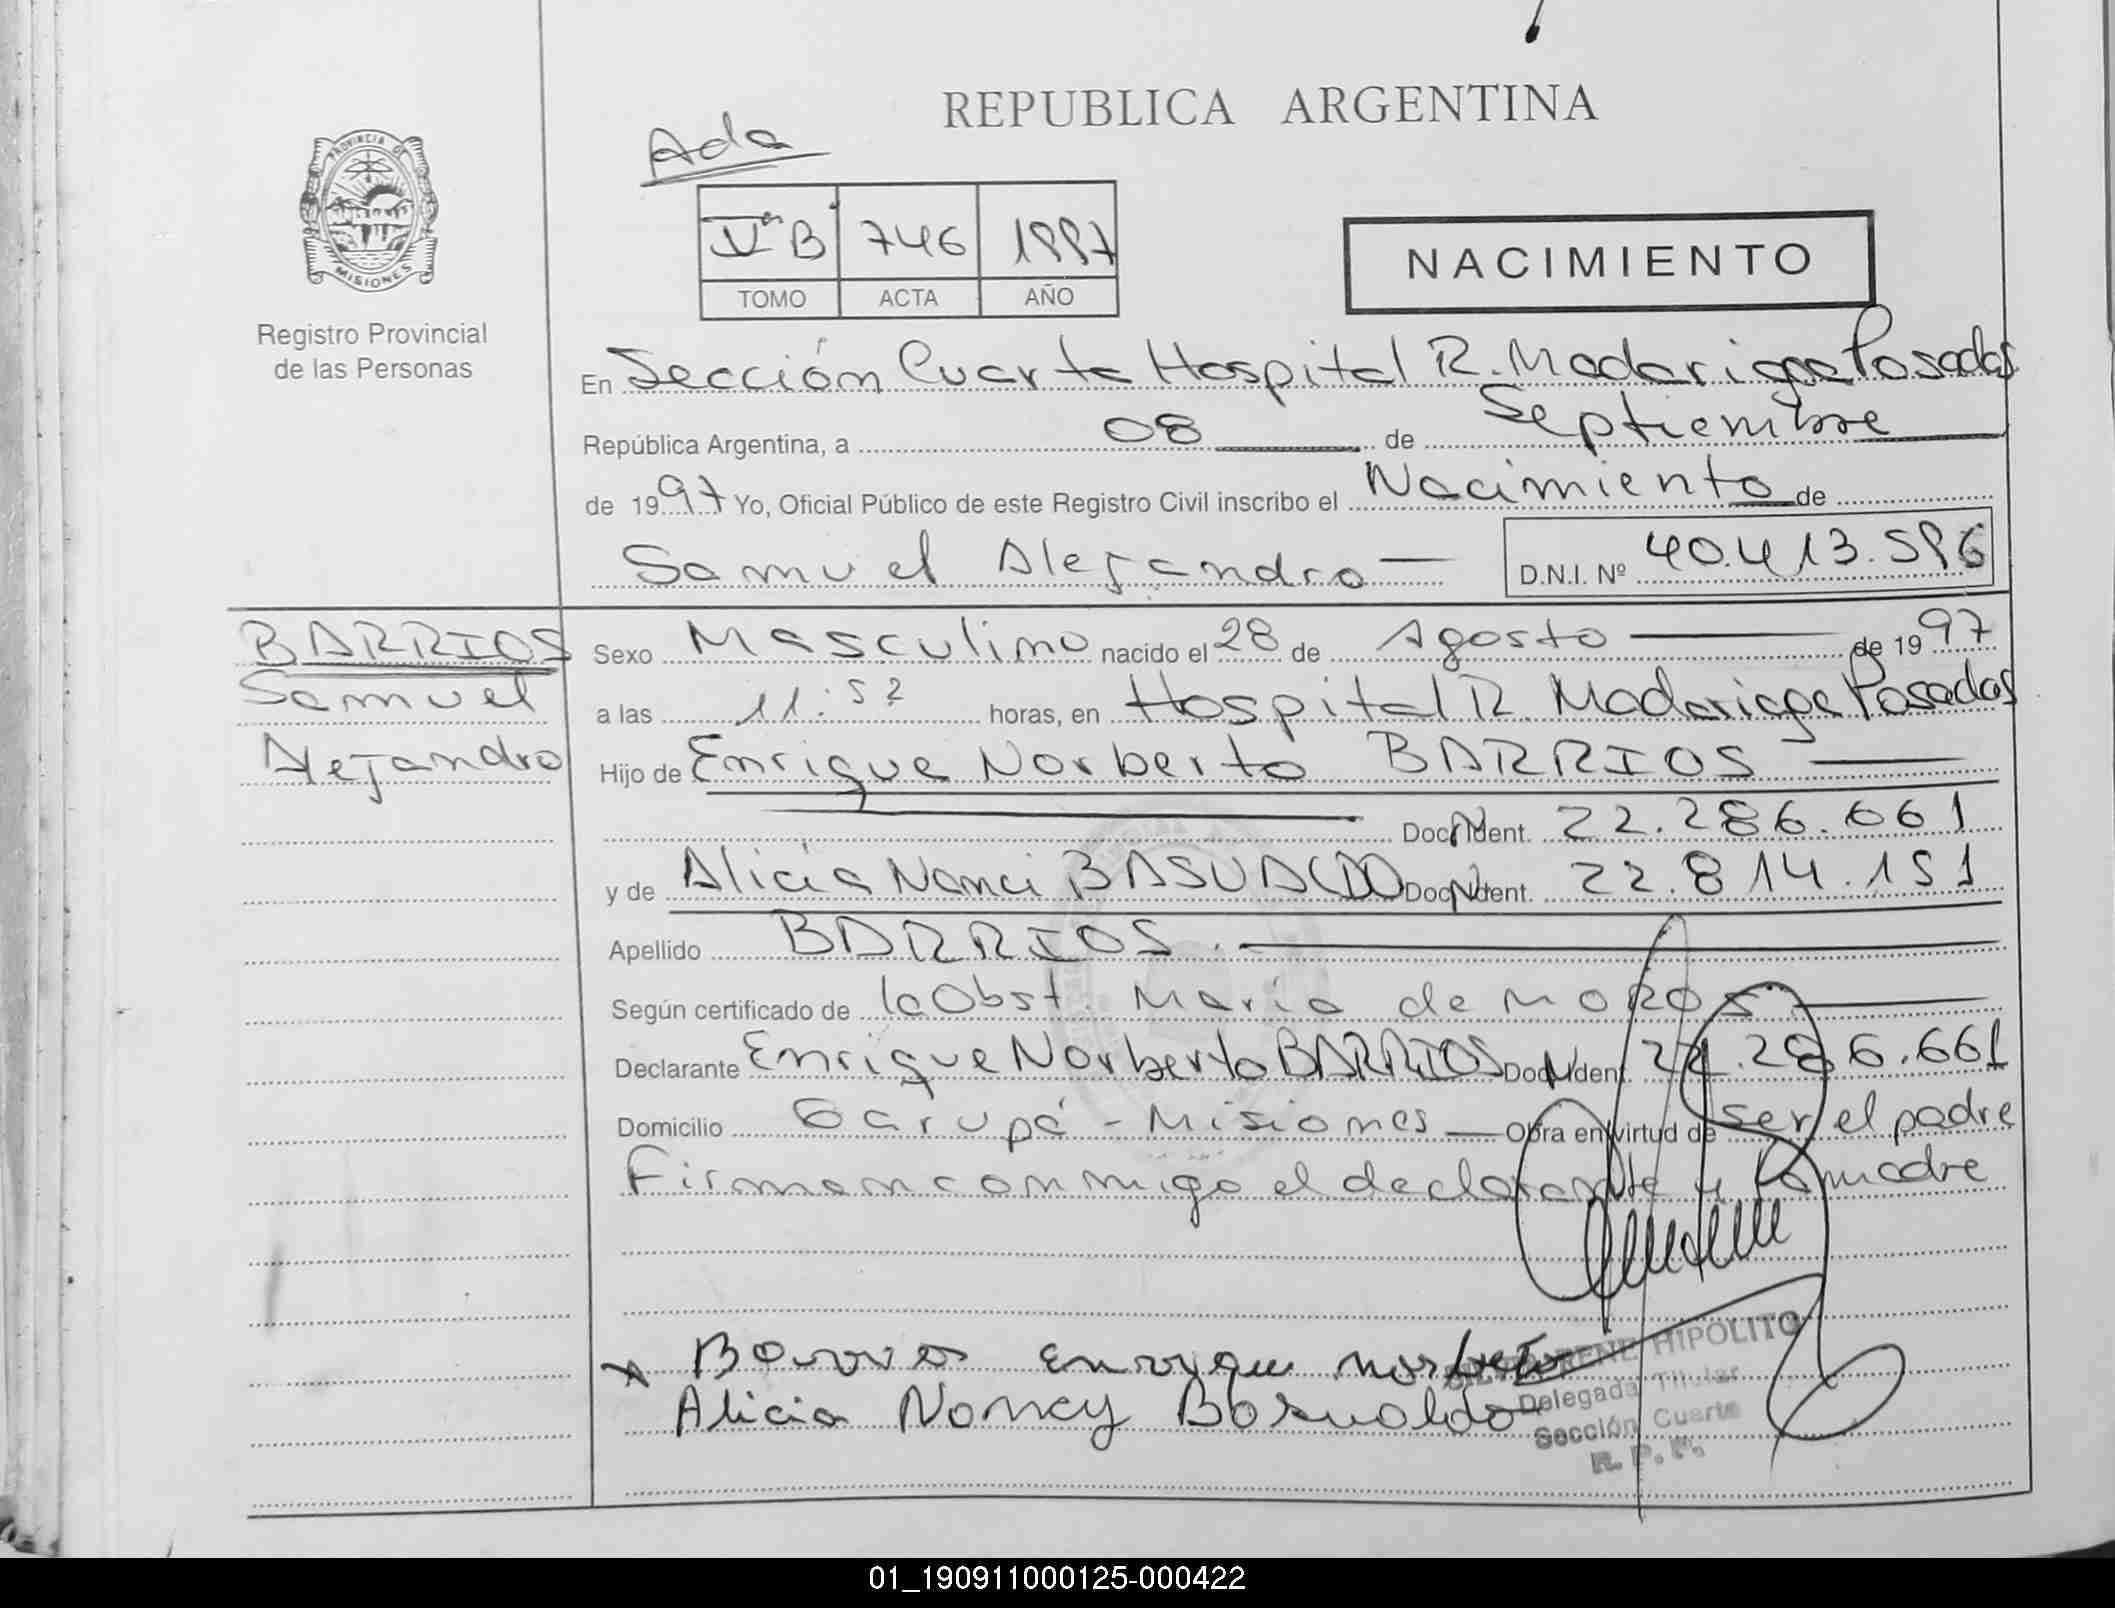 REPUBLICA ARGENTINA
Ada
PROVINCIA DE
MISIONES
Registro Provincial
de las Personas
Vº B 746 1997
TOMO ACTA AÑO
NACIMIENTO
En Sección Cuarta Hospital R. Madariaga Posadas
República Argentina, a 08 de Septiembre
de 1997 Yo, Oficial Público de este Registro Civil inscribo el Nacimiento de
Samuel Alejandro D.N.I. Nº 40.413.596
BARRIOS
Samuel
Alejandro
Sexo Masculino nacido el 28 de Agosto de 1997
a las 11:52 horas, en Hospital R. Madariaga Posadas
Hijo de Enrique Norberto BARRIOS
Doc. Ident. 22.286.661
y de Alicia Nanci BASUALDO Doc. Ident. 22.814.151
Apellido BARRIOS.
Según certificado de la Obst. María de MOROS
Declarante Enrique Norberto BARRIOS Doc. Ident. 22.286.661
Domicilio Garupá - Misiones Obra en virtud de ser el padre
Firman conmigo el declarante y la madre
Barrios Enrique Norberto
Alicia Nancy Basualdo
IRENE HIPOLITO
Delegada Titular
Sección Cuarta
R. P. P.
01_190911000125-000422